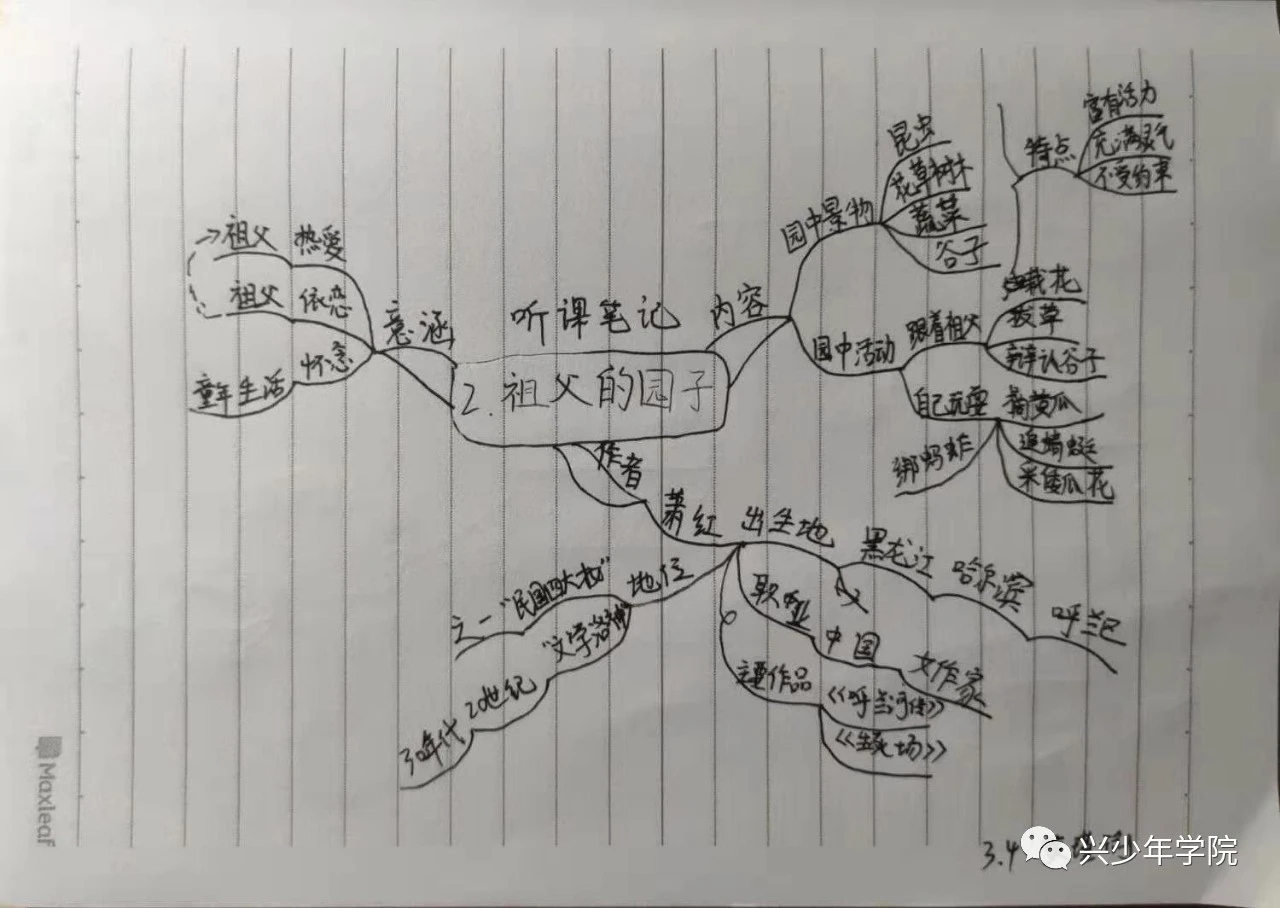 听课笔记
2.祖父的园子
内容
园中景物
昆虫
花草树木
蔬菜
谷子
特点
富有活力
充满灵气
不受约束
园中活动
跟着祖父
栽花
拔草
辩认谷子
自己玩耍
摘黄瓜
追蜻蜓
采倭瓜花
绑蚂蚱
意涵
热爱
祖父
依恋
祖父
怀念
童年生活
作者
萧红
出生地
黑龙江
哈尔滨
呼兰区
职业
中国
女作家
主要作品
《呼兰河传》
《生死场》
地位
"民国四大才女"
之一
"文学洛神"
20世纪
30年代
3.4
兴少年学院
Maxleaf